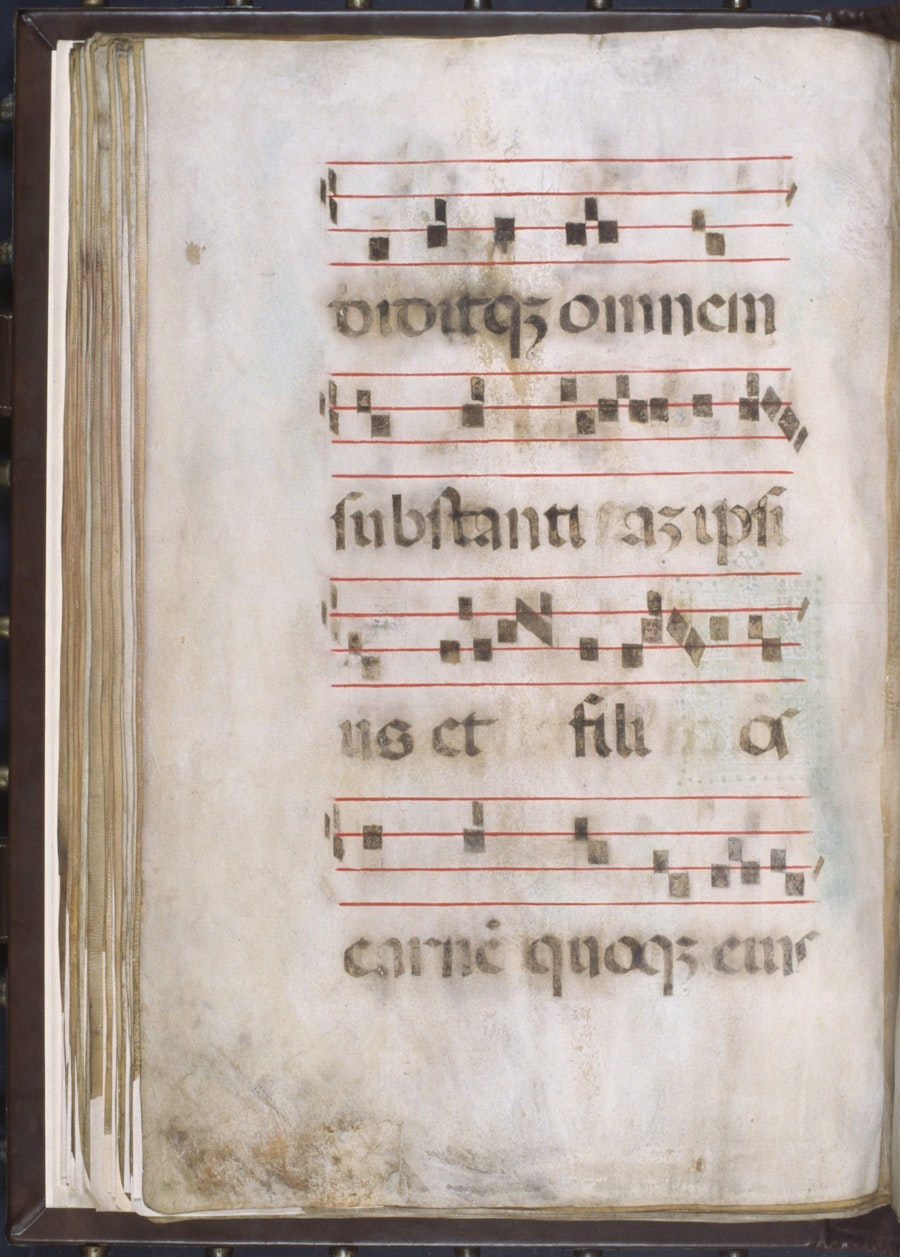 diditqꝫ omnem
substanti aꝫ ipsi
us et fili os
carnē quoqꝫ eius